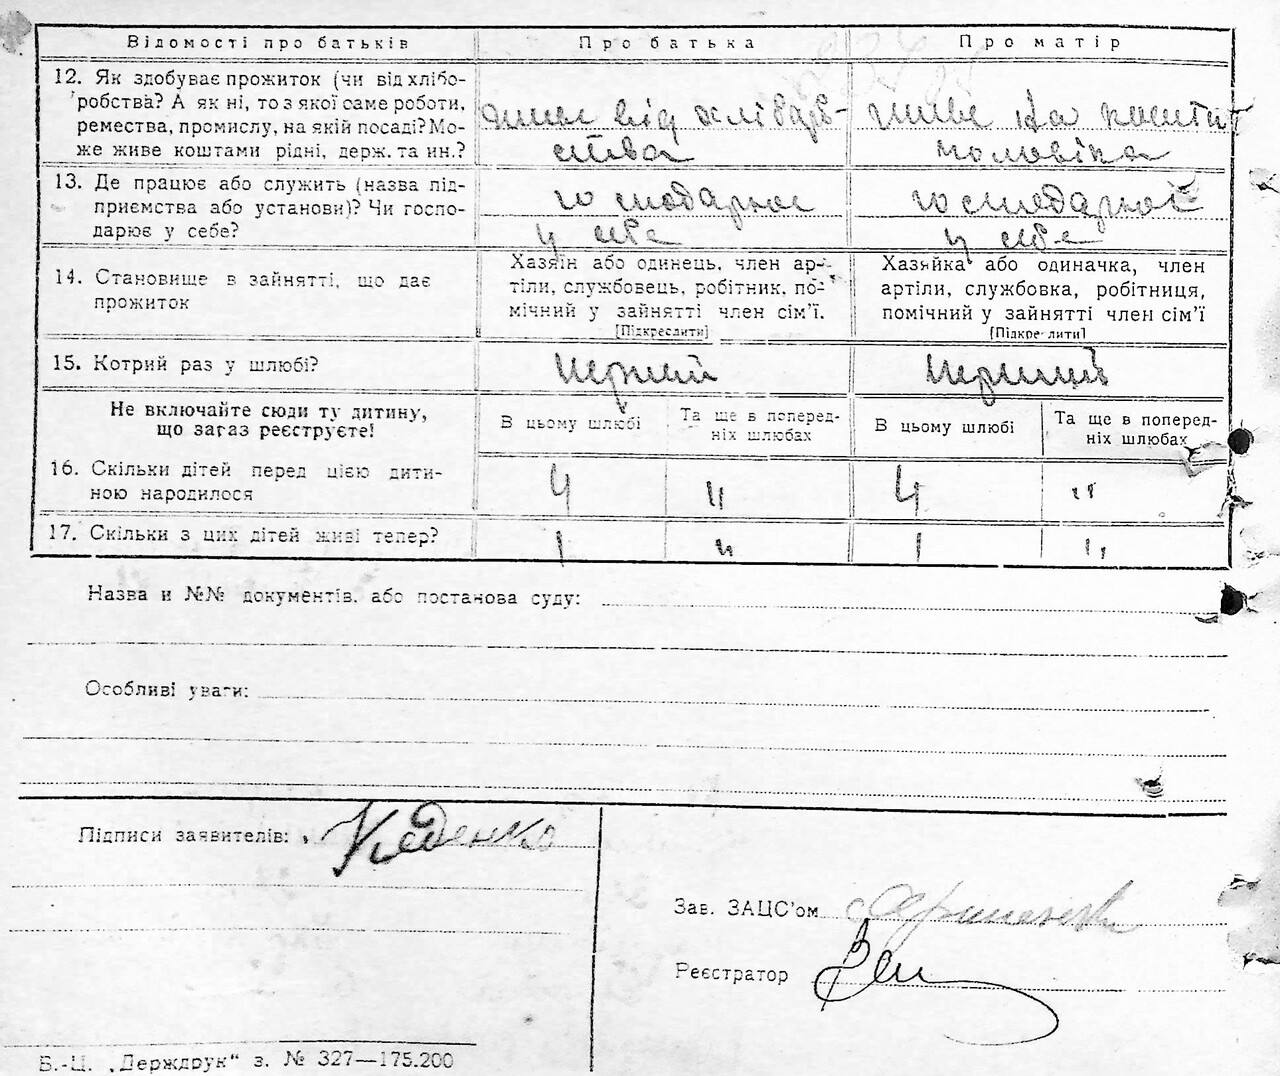 Відомості про батьків Про батька Про матір
12. Як здобуває прожиток (чи від хлібо-
робства? А як ні, то з якої саме роботи,
ремества, промислу, на якій посаді? Мо-
же живе коштами рідні, держ. та ин.?
живе від хлібороб-
ства
живе на кошти
чоловіка
13. Де працює або служить (назва під-
приємства або установи)? Чи госпо-
дарює у себе?
господарює
у себе
господарює
у себе
14. Становище в зайнятті, що дає
прожиток
Хазяїн або одинець, член ар-
тіли, службовець, робітник, по-
мічний у зайнятті член сім'ї.
[Підкреслити]
Хазяйка або одиначка, член
артіли, службовка, робітниця,
помічний у зайнятті член сім'ї
[Підкреслити]
15. Котрий раз у шлюбі? перший перший
Не включайте сюди ту дитину,
що зараз реєструєте!
В цьому шлюбі
Та ще в поперед-
ніх шлюбах
В цьому шлюбі
Та ще в поперед-
ніх шлюбах
16. Скільки дітей перед цією дити-
ною народилося
4 " 4 "
17. Скільки з цих дітей живі тепер? 1 " 1 "
Назва и №№ документів, або постанова суду:
Особливі уваги:
Підписи заявителів:
Зав. ЗАЦС'ом
Реєстратор
Б.-Ц. „Держдрук“ з. № 327—175.200